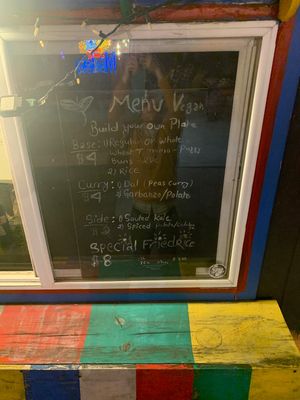 Menu Vegan
Build your own Plate
Base: 1) Regular or Whole
Wheat
$4 Buns
2) Rice
Curry: 1) Dal (Peas Curry)
$4 2) Garbanzo/Potato
Side: 1) Sauted Kale
$2 2) Spiced
Special Fried Rice
$8